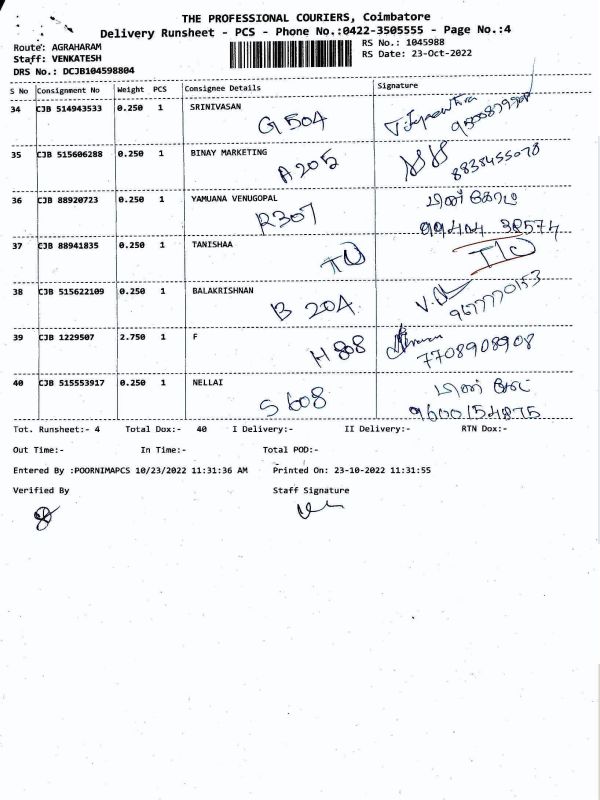 THE PROFESSIONAL COURIERS, Coimbatore
Delivery Runsheet - PCS - Phone No.:0422-3505555 - Page No.:4
Route: AGRAHARAM
RS No.: 1045988
Staff: VENKATESH
RS Date: 23-Oct-2022
DRS No.: DCJB104598804
S No Consignment No Weight PCS Consignee Details Signature
34 CJB 514943533 0.250 1 SRINIVASAN
G 504
35 CJB 515606288 0.250 1 BINAY MARKETING
A 205 8838455078
36 CJB 88920723 0.250 1 YAMUANA VENUGOPAL
R 307 99404 38574
37 CJB 88941835 0.250 1 TANISHAA
38 CJB 515622109 0.250 1 BALAKRISHNAN
B 204 9677770153
39 CJB 1229507 2.750 1 F
H 808 7708908908
40 CJB 515553917 0.250 1 NELLAI
S 608 9600154875
Tot. Runsheet:- 4 Total Dox:- 40 I Delivery:- II Delivery:- RTN Dox:-
Out Time:- In Time:- Total POD:-
Entered By :POORNIMAPCS 10/23/2022 11:31:36 AM Printed On: 23-10-2022 11:31:55
Verified By Staff Signature